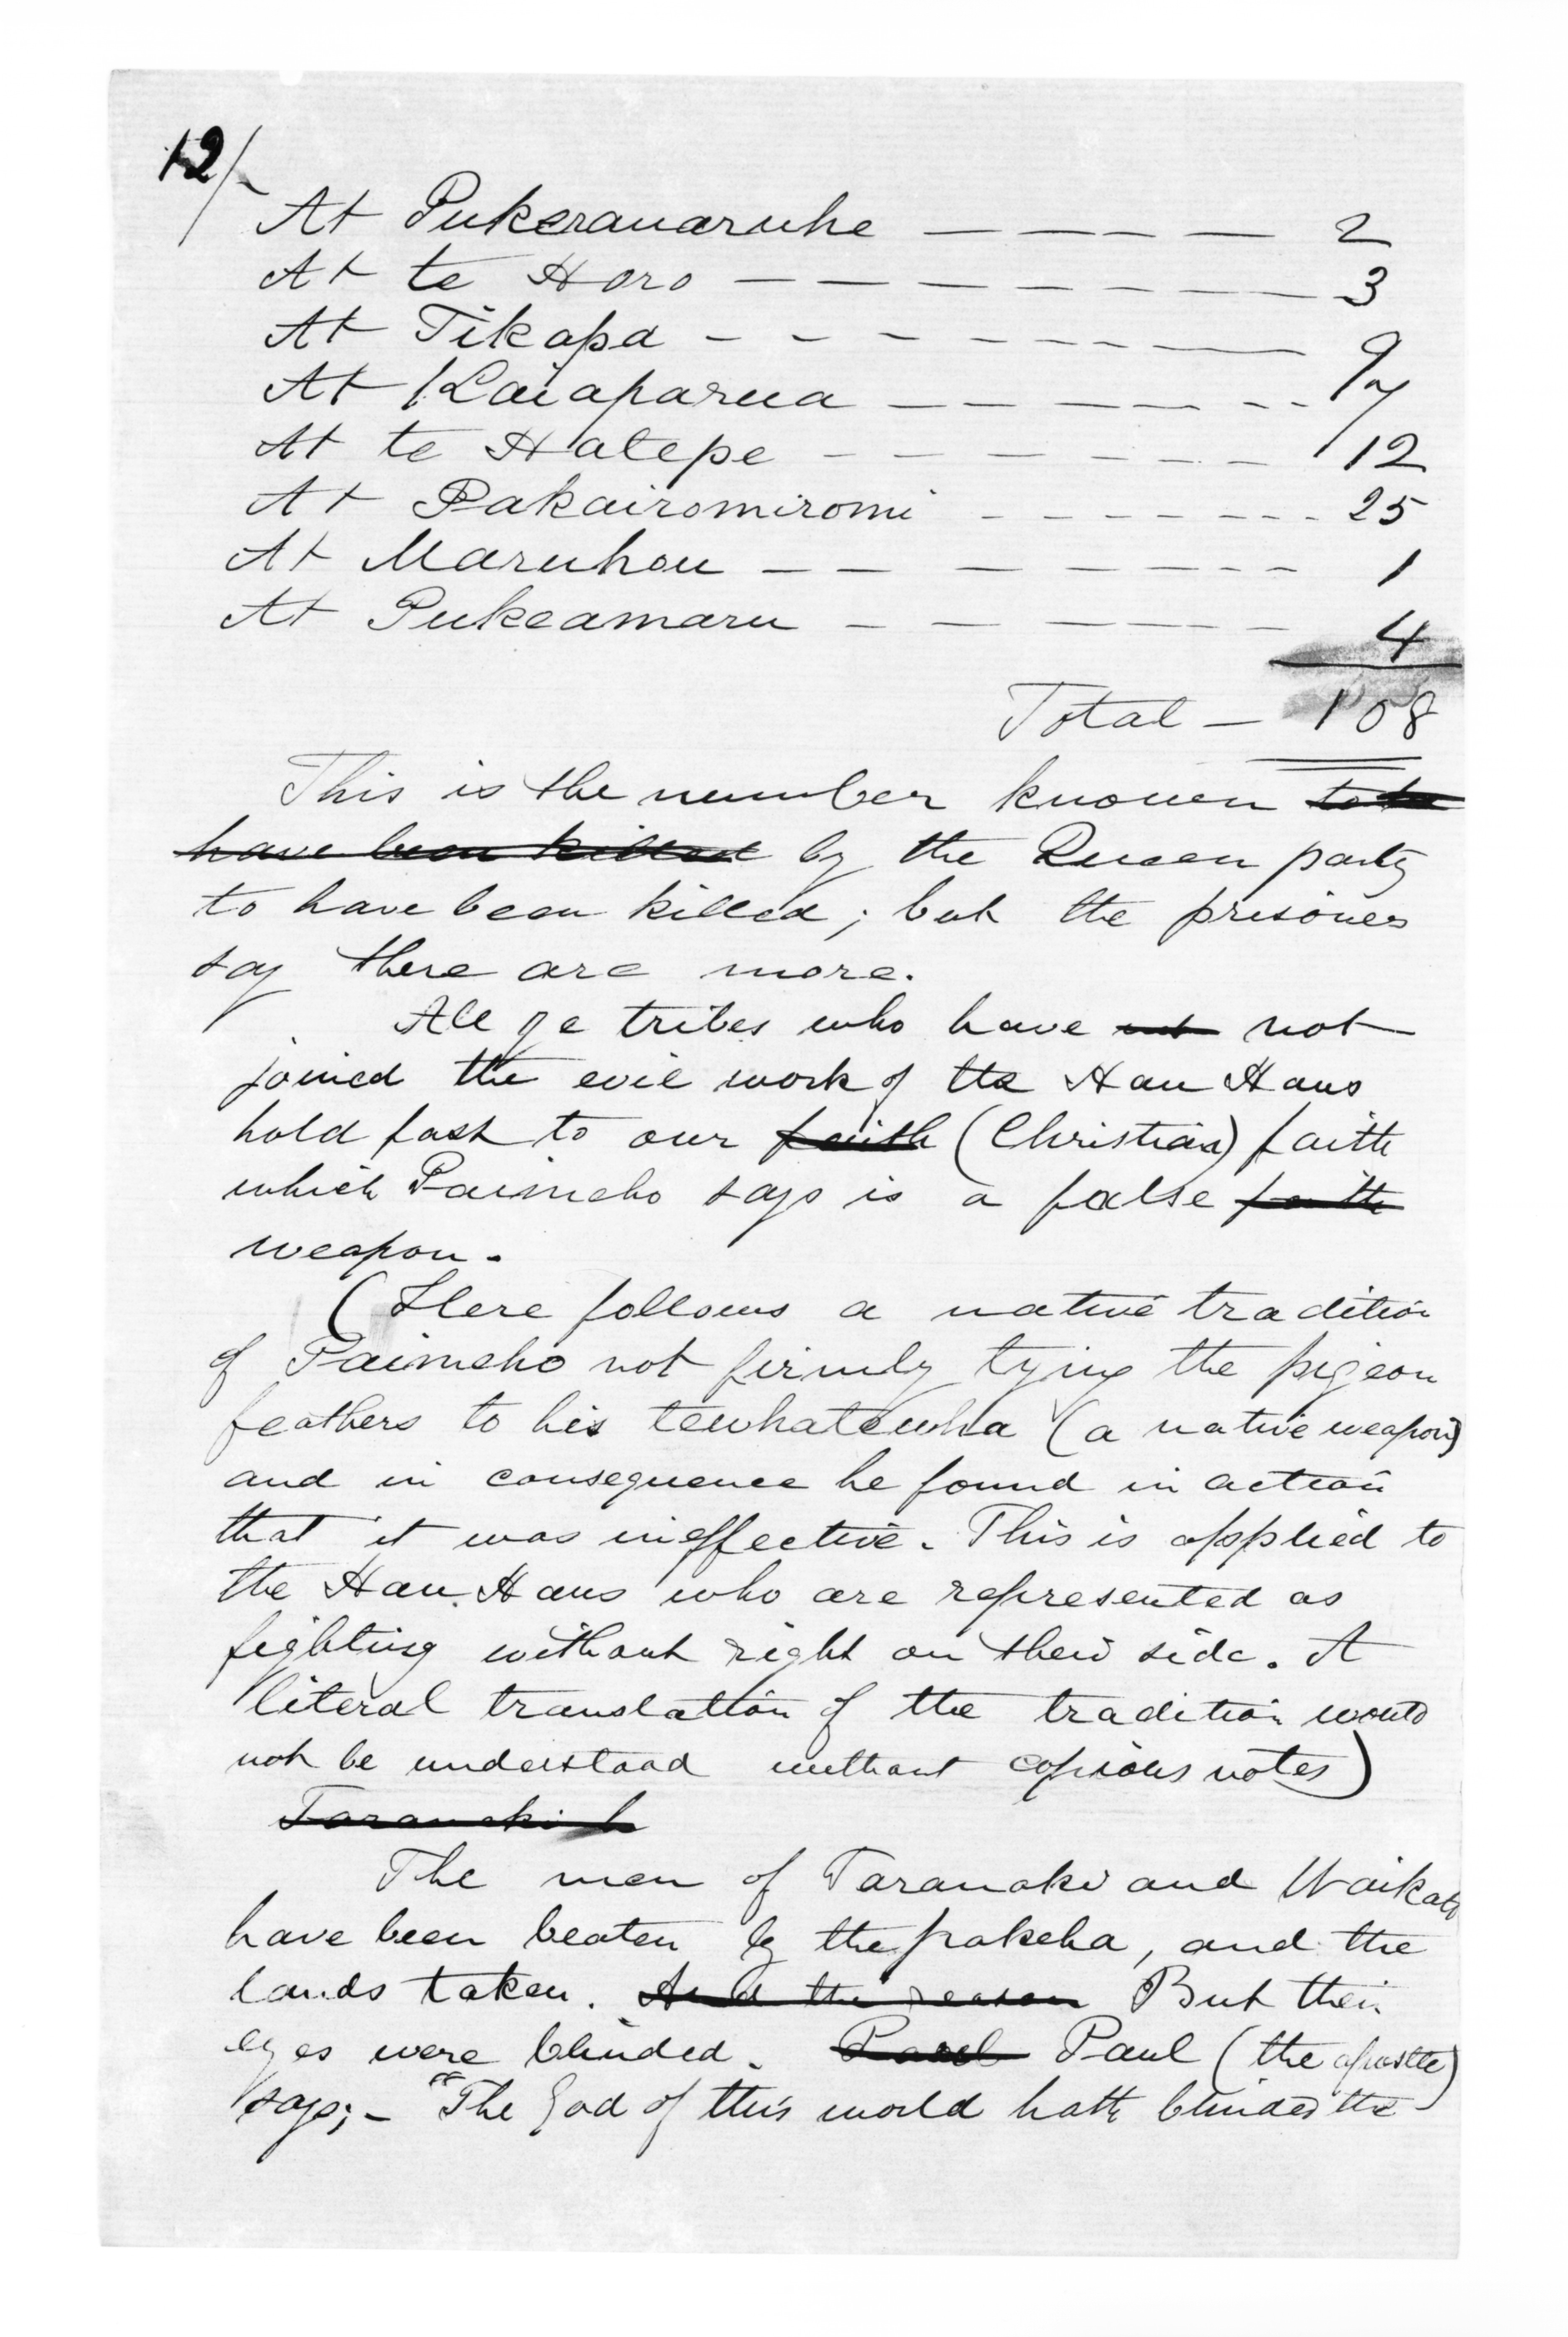 12/
At Pukerauaruhe — — — — 2
At te Horo — — — — — — — 3
At Tikapa - - - - - - - — 9
At Kaiaparua — — — — - - 7
At te Hatepe - - — — - - — 12
At Pakairomiromi - - - - - - - 25
At Maruhou — — — — — - - 1
At Pukeamaru — — — — - - 4
Total — 108
This is the number known to be
have been killed by the Queen party
to have been killed; but the prisoners
say there are more.
All ye tribes who have not
joined the evil work of the Hau Haus
hold fast to our faith (Christian) faith
which Paimeho says is a false faith
weapon.
(Here follows a native tradition
of Paimeho not firmly tying the pigeon
feathers to his tewhatewha (a native weapon)
and in consequence he found in action
that it was ineffective. This is applied to
the Hau Haus who are represented as
fighting without right on their side. A
literal translation of the tradition would
not be understood without copious notes)
Taranaki h
The men of Taranaki and Waikato
have been beaten by the pakeha, and the
lands taken. And the reason But their
eyes were blinded. Paul Paul (the apostle)
says; - "The God of this world hath blinded the